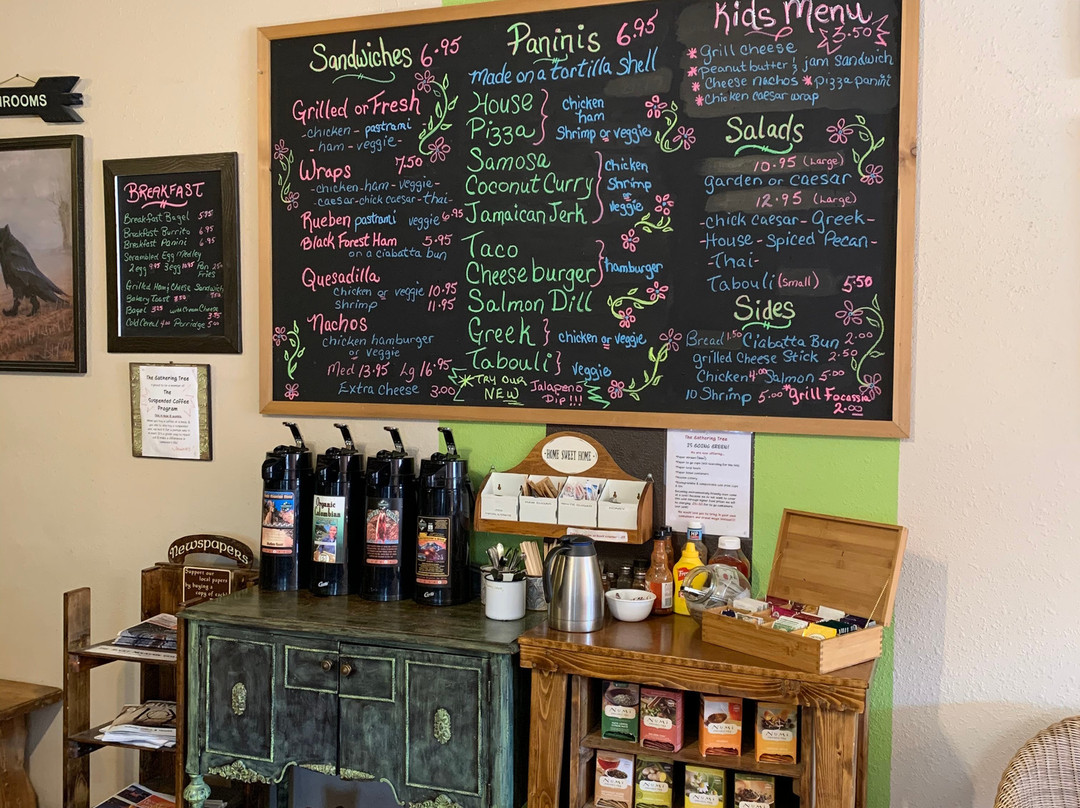 ROOMS
BREAKFAST
Breakfast Bagel 5.95
Breakfast Burrito 6.95
Breakfast Panini 6.95
Scrambled Egg Medley
2 egg 9.95 3 egg 10.95 Pan Fries
Grilled Ham/Cheese Sandwich
Bakery Toast
Bagel 3.25 with Cream Cheese
Cold Cereal Porridge
The Gathering Tree
The
Suspended Coffee
Program
Sandwiches 6.95
Grilled or Fresh
-chicken - pastrami
- ham - veggie-
Wraps 7.50
-chicken-ham-veggie-
-caesar-chick caesar-thai-
Rueben pastrami veggie 6.95
Black Forest Ham 5.95
on a ciabatta bun
Quesadilla
chicken or veggie 10.95
shrimp 11.95
Nachos
chicken hamburger
or veggie
Med 13.95 Lg 16.95
Extra Cheese 3.00
Paninis 6.95
made on a tortilla shell
House
Pizza
chicken
ham
Shrimp or veggie
Samosa
Coconut Curry
Jamaican Jerk
chicken
Shrimp
or
veggie
Taco
Cheeseburger
hamburger
Salmon Dill
Greek } chicken or veggie
Tabouli } veggie
*TRY OUR
NEW
Jalapeno
Dip!!!
Kids Menu
3.50
* grill cheese
* peanut butter & jam sandwich
* Cheese nachos * pizza panini
* Chicken caesar wrap
Salads
10.95 (Large)
garden or caesar
12.95 (Large)
-chick caesar-Greek-
-House-Spiced Pecan-
-Thai-
Tabouli (small) 5.50
Sides
Bread 1.50 Ciabatta Bun 2.00
grilled Cheese Stick 2.50
Chicken 4.00 Salmon 5.00
10 Shrimp 5.00 *grill Focassia
2.00
HOME SWEET HOME
The Gathering Tree
IS GOING GREEN!
Newspapers
Support our
local papers
by buying a
copy of
Organic
Colombian
NUMI
NUMI
NUMI
NUMI
NUMI
NUMI
NUMI